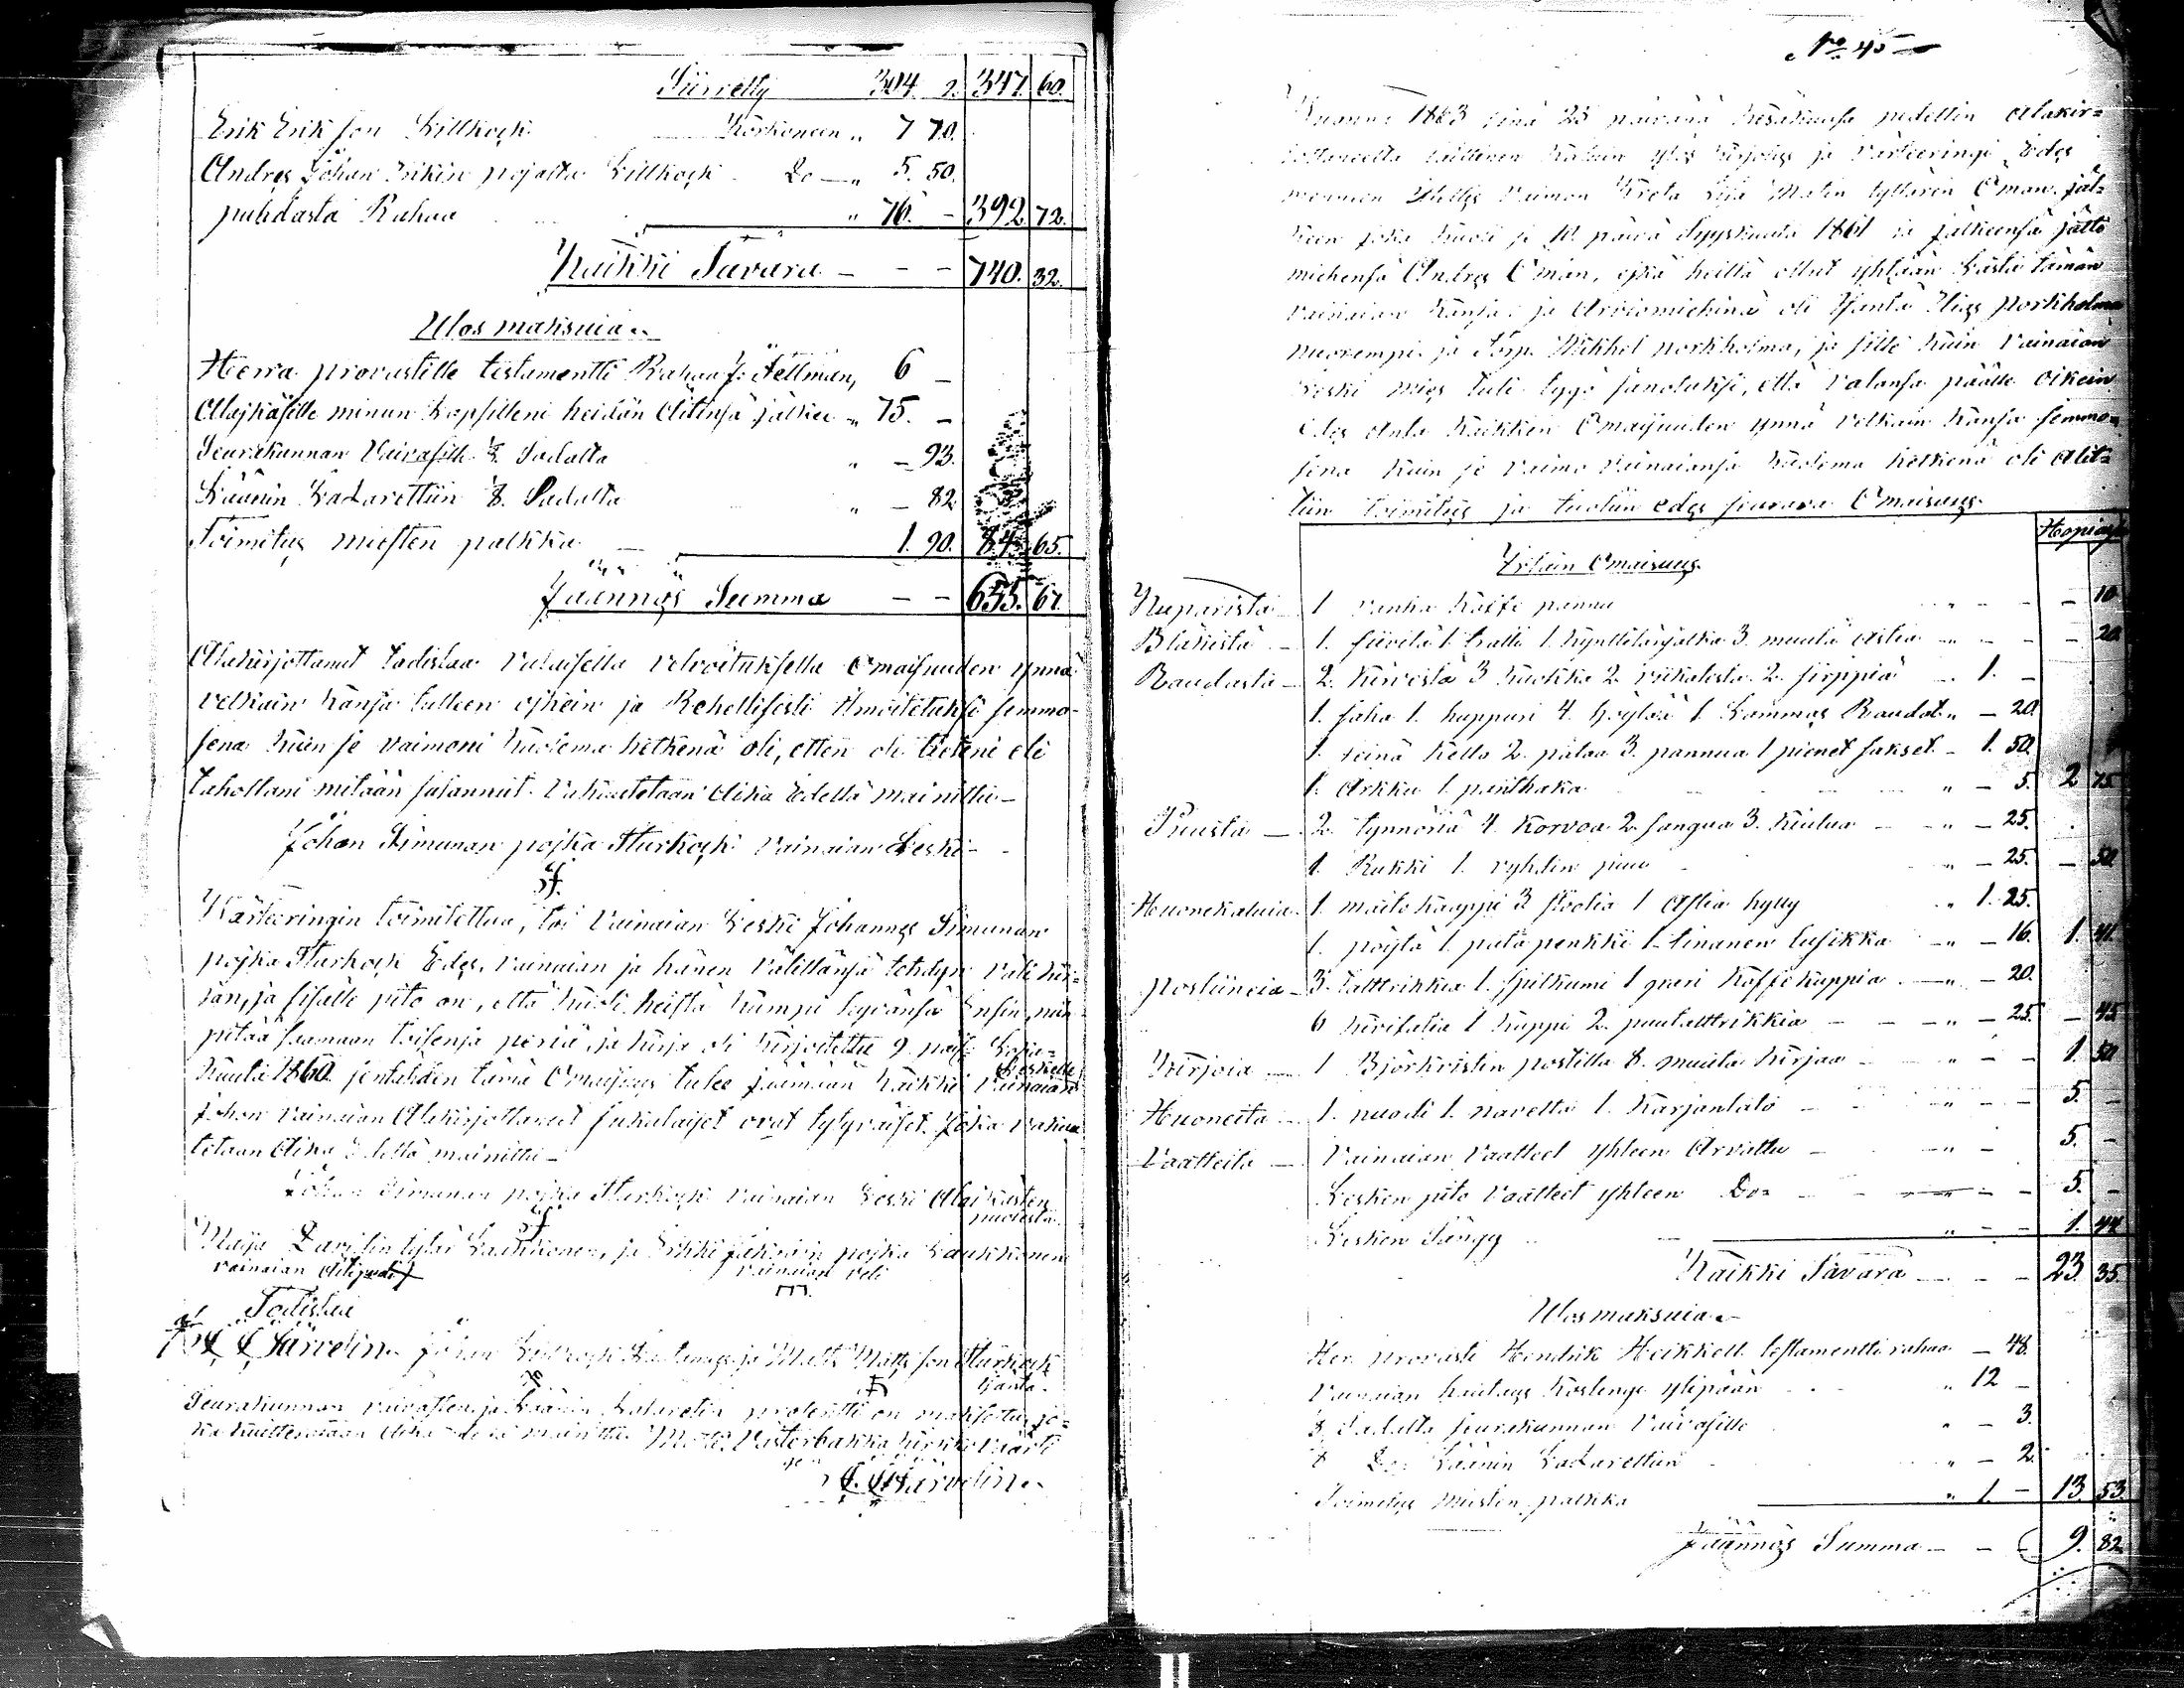 Siirretty 304. 2. 347. 60.
Erik Erik son Lillkåsk Korkoneen " 7 70.
Andreas Johan Erikin pojalta Lillkåsk Do — " 5. 50.
puhdasta Rahaa " 76. – 392 72.
Kaikki Tavara – – – 740. 32.
Ulos maksuia
Herra provastille testamentti Rahaa J. Fellman, 6 –
Alajkäsille minun Lapsilleni heidän Äitinsä jälkee " 75. –
Seurakunnan Vaivasille Sadalta " – 93.
Läänin Lazarettiin 1/8 Sadalta " – 82
Toimitus miesten palkka 1. 90. 84. 65.
Jäännös Summa – – 655. 67.
Allakirjottanut todistaa valaisella velvoituksella Omaisuuden ynnä
velkain kansa tulleen oikein ja Rehellisesti Ilmoitetuksi semmo-
sena kuin se vaimoni kuolema hetkenä oli, etten ole tieteni eli
tahottani mitään salannut. Vakuutetaan Aika Edellä mainittu –
Johan Simunan pojka Sturkåsk Vainaian Leski –
Wärteeringin toimitettua, toi Vainaian Leski Johannes Simunan
pojka Sturkåsk Edes, Vainaian ja hänen Välillänsä tehdyn Väli kir-
jan, ja sisälle pito on, että kuoli heistä kumpi hyvänsä Ensin, niin
pitää saamaan toisensa periä, ja kirja oli kirjoitettu 9 päi Loka-
kuuta 1860. jentähden tämä Omaisuus tulee jäämään kaikki Vainaian Leskelle
johon vainaian Allakirjottaneet sukulaiset ovat tytyväiset. Joka vakuu
tetaan Aika Edellä mainittu –
Johan Simunan pojka Sturkåsk vainaian Leski Alaikästen puolesta.
Maija Davitin tytär Laukkonen, ja Erikki Jakopin pojka Laukkonen
vainaian Äitipuoli vainaian veli
Todistaa
C Järvelin Johan ja Matts Matts son Sturkåsk
Isäntä.
Seurakunnan vaivasten ja Läänin Lazaretin prosentti on maksettu, jo-
ka kuitteerataan Aika mainittu Matts Västerbakka kirkko väärti
C. Järvelin
No 45
Vuonna 1863 sinä 25 päivänä kesäkuusa pidettiin Alakir-
jottaneelta laillinen kalun ylös kirjotus ja Värteeringi Edes
mennen vaimon Kreta Lisa Matin tyttären Öman jäl-
keen joka kuoli je 10 päivä Syyskuuta 1861 ja jälkeensä jätti
miehensä Andreas Öman, eikä heillä ollut yhtään Lasta tämän
vainaian kansa: ja Arviomiehinä oli Isäntä Elias Porkholma
nuorempi ja Torp. Mikkel Porkholma, ja sitte kuin Vainaian
Leski mies tuli tygö sanotuksi, että Valansa päälle oikein
Edes Anta kaikken Omaisuuden ynnä velkain kansa semmo-
sena kuin se vaimo vainaiansa kuolema hetkenä oli Alet-
tiin toimitus ja tuotiin edes seurava Omaisuus.
Hopiasa
Irtain Omaisuus
Kuparista 1 vanha kaffe pannu – 10
Bläkistä 1. siivilä 1 tratti 1 kynttilänjalka 3. muuta astia " – – 20
Raudasta 2. kirvestä 3 kuokka 2 viikatesta 2. sirppiä 1. –
1. saha 1. huppuri 4. höylää 1 Lammas Raudat " – 20.
1. seinä kello 2. pataa 3. pannua 1 pienet sakset – 1. 50.
1. Arkku 1. panthaka " – 5. 2 75
Puusta 2. tynnöriä 4. korvoa 2. sangua 3. kiulua " – 25.
1. Rukki 1. vyhdin puu " – 25. – 50
Huonekaluia 1. maito kaappi 3 stoolia 1 Astia hylly " 1. 25.
1. pöytä 1. pata penkki 1. tinanen lusikka " – 16. 1. 41
Posliineia 3. talttrikkia 1. spilkumi 1 pari kaffekuppia " – 20.
6 kivilatia 1 kuppi 2. puutalttrikkia " – 25. – 45
Kirjoia 1 Björkvistin postilla 8. muuta kirjaa " – – 1. 50
Huoneita 1. puodi 1. navetta 1. karjanlato " – – 5. –
Vaatteita Vainaian Vaatteet yhteen Arvattu – " – 5. –
Lesken pito Vaatteet yhteen Do – 5. –
Lesken Sängy " – – 1. 44
Kaikki Tavara – – – 23. 35.
Ulos maksuia
Her. provasti Hendrik Heikkell testamentti rahaa – 48.
Vainaian hautaus kostingi ylipään " 12 –
1/8 Sadalta seurakunnan Vaivasille " – 3.
Do Läänin Lazarettiin " – 2.
Toimitus miesten palkka " 1. – 13. 53.
Jäännös Summa – – 9. 82